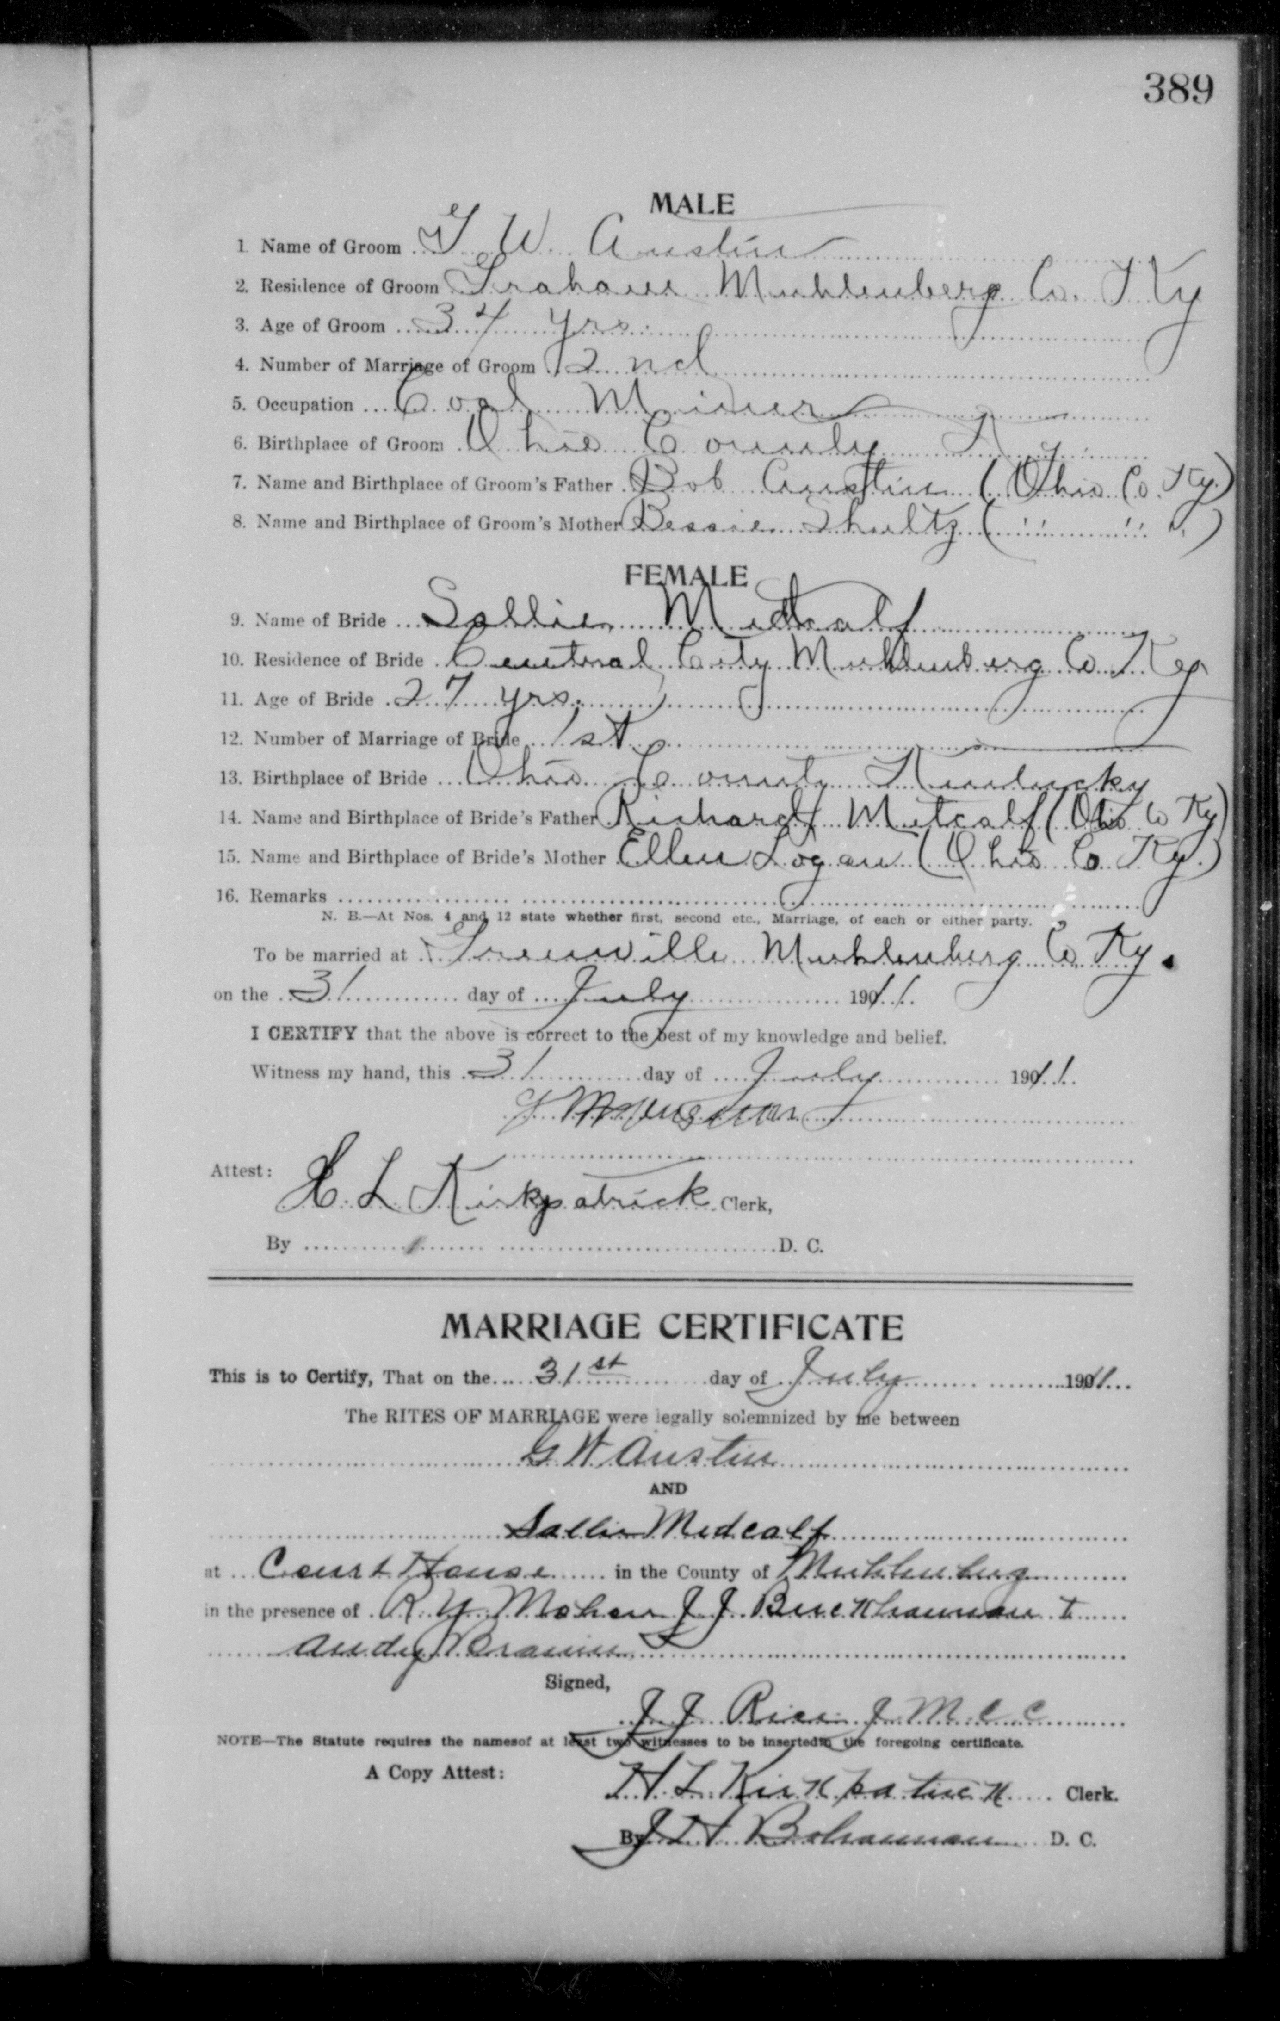 389
MALE
1. Name of Groom G W Austin
2. Residence of Groom Graham Muhlenberg Co. Ky
3. Age of Groom 34 yrs.
4. Number of Marriage of Groom 2nd
5. Occupation Coal Miner
6. Birthplace of Groom Ohio County Ky.
7. Name and Birthplace of Groom's Father Bob Austin (Ohio Co. Ky.)
8. Name and Birthplace of Groom's Mother Bessie Shultz ( " " ")
FEMALE
9. Name of Bride Sallie Metcalf
10. Residence of Bride Central City Muhlenberg Co Ky
11. Age of Bride 27 yrs.
12. Number of Marriage of Bride 1st
13. Birthplace of Bride Ohio County Kentucky
14. Name and Birthplace of Bride's Father Richard Metcalf (Ohio Co Ky)
15. Name and Birthplace of Bride's Mother Ellen Logan (Ohio Co Ky.)
16. Remarks
N. B.—At Nos. 4 and 12 state whether first, second etc., Marriage, of each or either party.
To be married at Greenville Muhlenberg Co Ky.
on the 31 day of July 1911
I CERTIFY that the above is correct to the best of my knowledge and belief.
Witness my hand, this 31 day of July 1911
Attest:
H. L Kirkpatrick Clerk,
By D. C.
MARRIAGE CERTIFICATE
This is to Certify, That on the 31st day of July 1911
The RITES OF MARRIAGE were legally solemnized by me between
G W Austin
AND
Sallie Medcalf
at Court House in the County of Muhlenberg
in the presence of R. Y. Mohon J J Buckhannan &
Andy Brown
Signed,
J J Rice J M C C
NOTE—The Statute requires the namesof at least two witnesses to be insertedin the foregoing certificate.
A Copy Attest:
H L Kirkpatrick Clerk.
By J H Bohannan D. C.